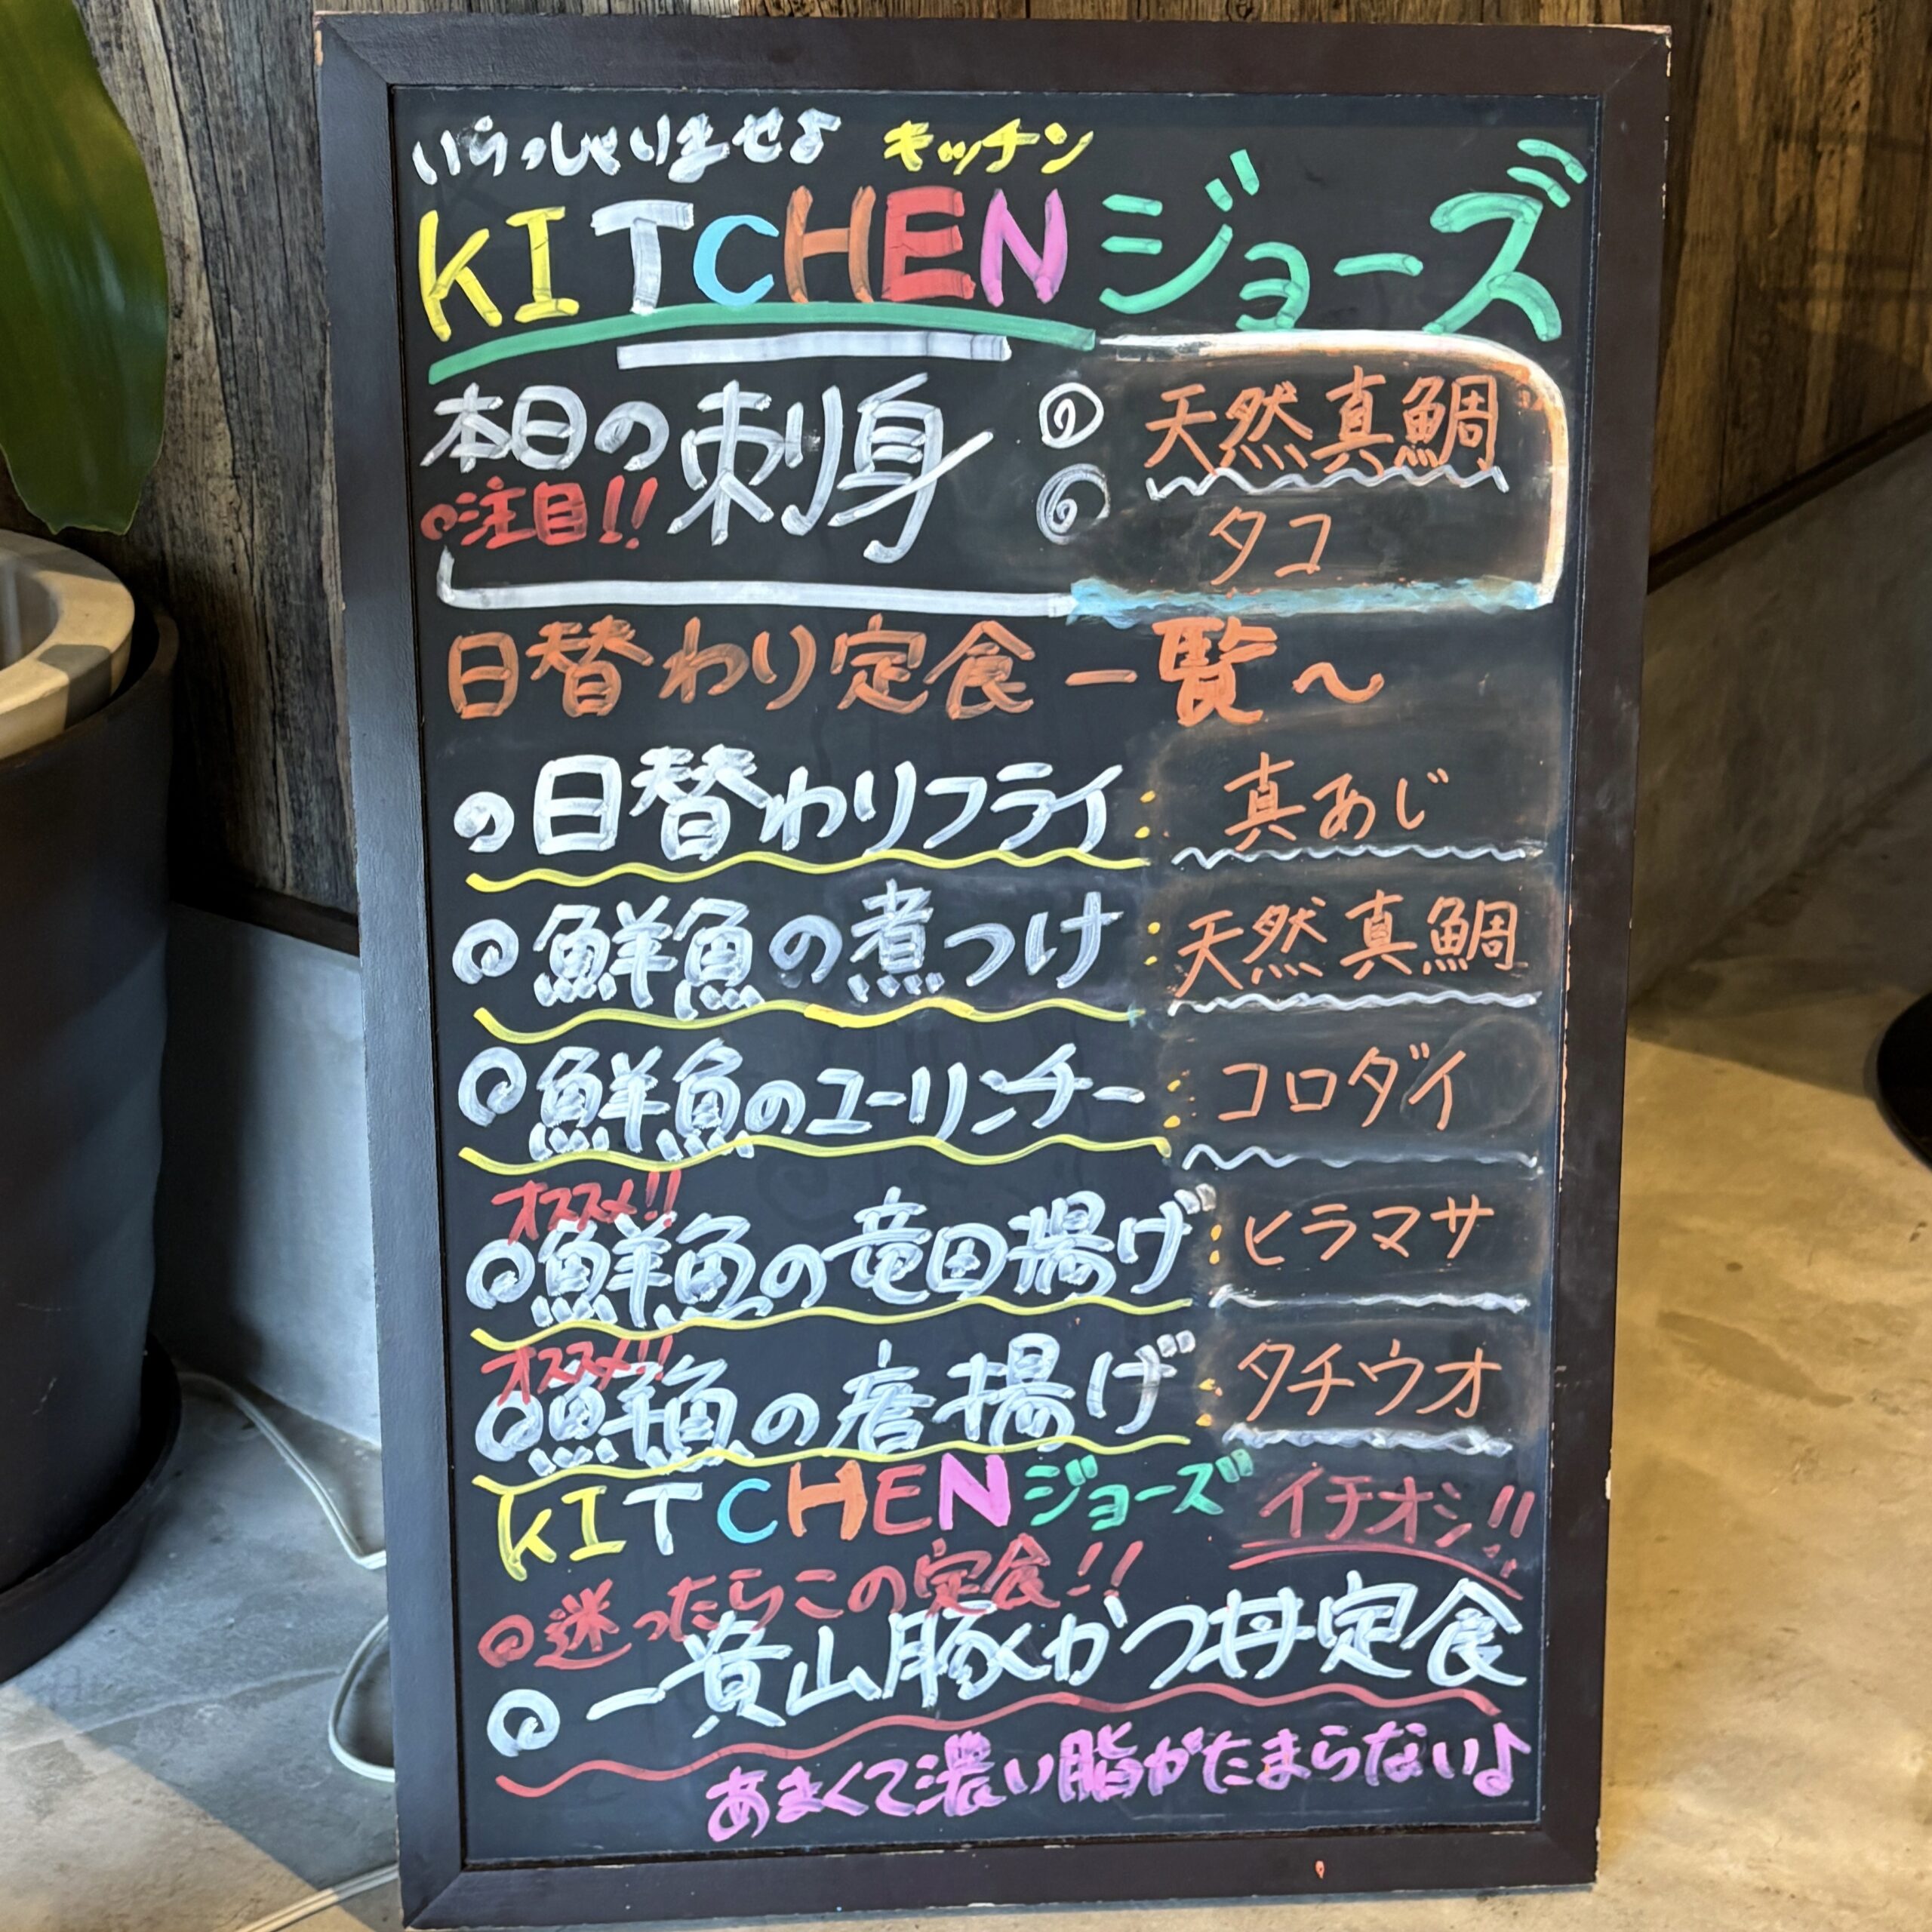 いらっしゃいませ♪ キッチン
KITCHEN ジョーズ
本日の刺身 天然真鯛
注目!! タコ
日替わり定食一覧〜
日替わりフライ: 真あじ
鮮魚の煮つけ: 天然真鯛
鮮魚のユーリンチー: コロダイ
オススメ!!
鮮魚の竜田揚げ: ヒラマサ
オススメ!!
鮮魚の唐揚げ: タチウオ
KITCHEN ジョーズ イチオシ!!
迷ったらこの定食!!
一貴山豚くかつ丼定食
あまくて濃い脂がたまらない♪